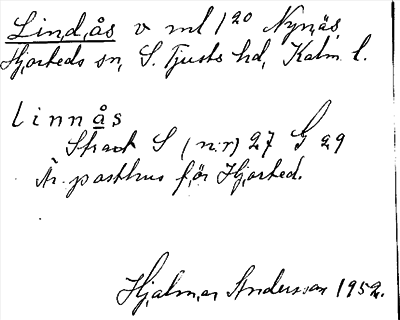 Lindås v ml 1²⁰ Nynäs,
Hjorteds sn, S. Tjusts hd, Kalm l.
linnås
Strack S (nr) 27 G 29
Är posthus för Hjorted.
Hjalmar Andersson 1952.